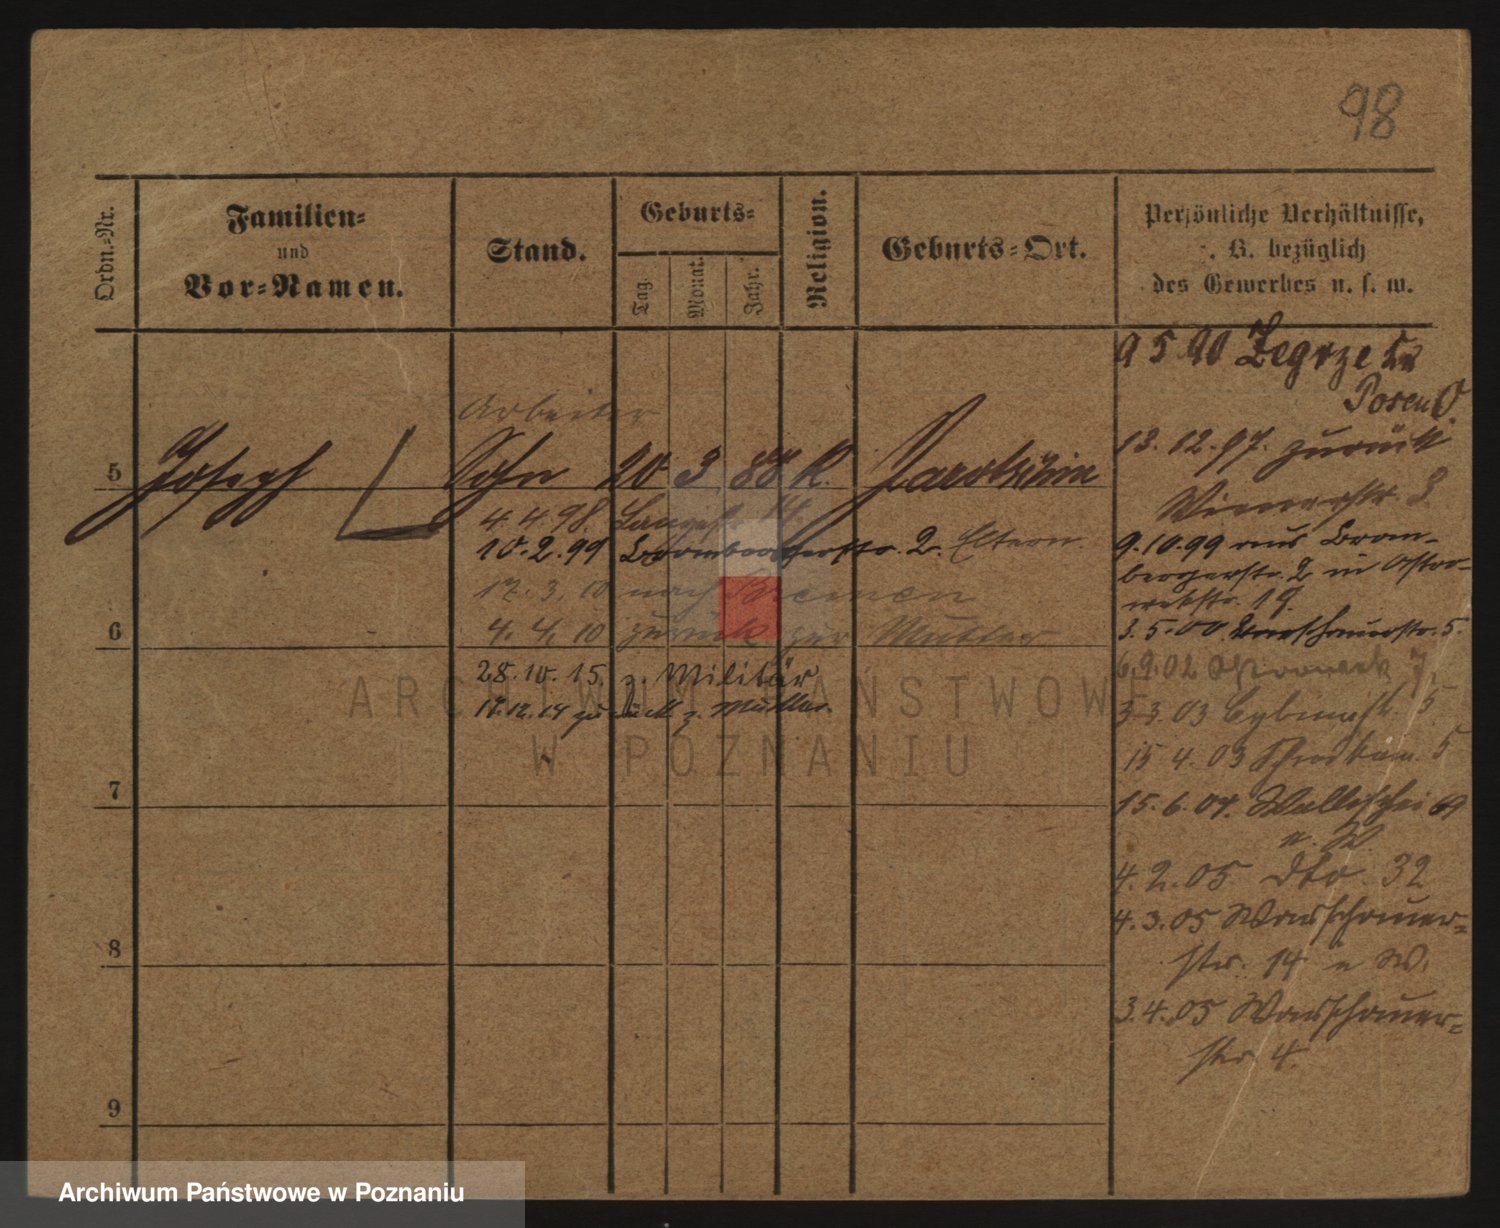 98
Ordn.-Nr.
Familien-
und
Vor-Namen.
Stand.
Geburts-
Tag.
Monat.
Jahr.
Religion.
Geburts-Ort.
Persönliche Verhältnisse,
. B. bezüglich
des Gewerbes u. s. w.
9 5 90 Zegrze Kr
Posen O.
Arbeiter
13.12.97. zurück
5
Joseph
Sohn
10 3 88 K.
4.4.98. 14.
10.2.99 Brombergerstr. 2. Eltern
9.10.99 aus Brom-
bergerstr. 2 in Ostro-
wekstr. 19.
17.3.10 nach Bremen
6
4.4.10 zurück zur Mutter
3.5.00 Warschauerstr. 5.
28.10.15. z. Militär
6.9.02 Ostrowek 7.
zurück z. Mutter.
3 3 03 Cybinastr. 5
15 4.03 5
ARCHIWUM PAŃSTWOWE
W POZNANIU
7
15.6.04. Wallischei
n. W
4.2.05 dto. 32
8
4.3.05 Warschauer-
str. 14 n W.
3.4.05 Warschauer-
str. 4.
9
Archiwum Państwowe w Poznaniu